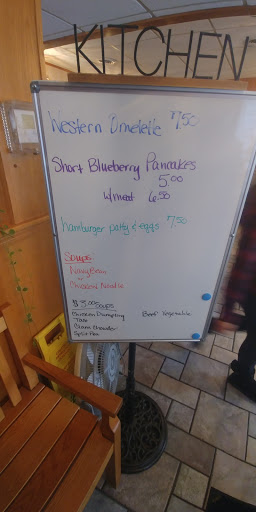 KITCHEN
Western Omelette 7.50
Short Blueberry Pancakes
5.00
w/meat 6.50
hamburger patty & eggs 7.50
Soups
Navy Bean
Chicken Noodle
$3.00 Soups
Chicken Dumpling
Beef Vegetable
Taco
Clam Chowder
Split Pea